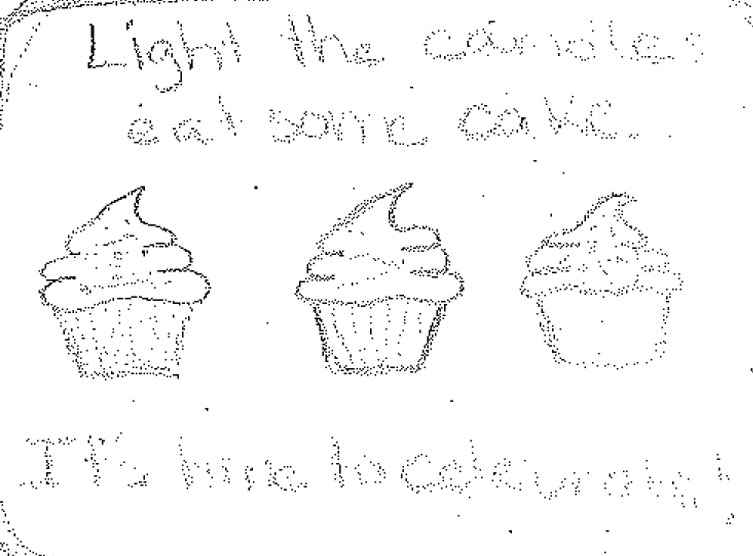 Light the candles
eat some cake.
It's time to celebrate!